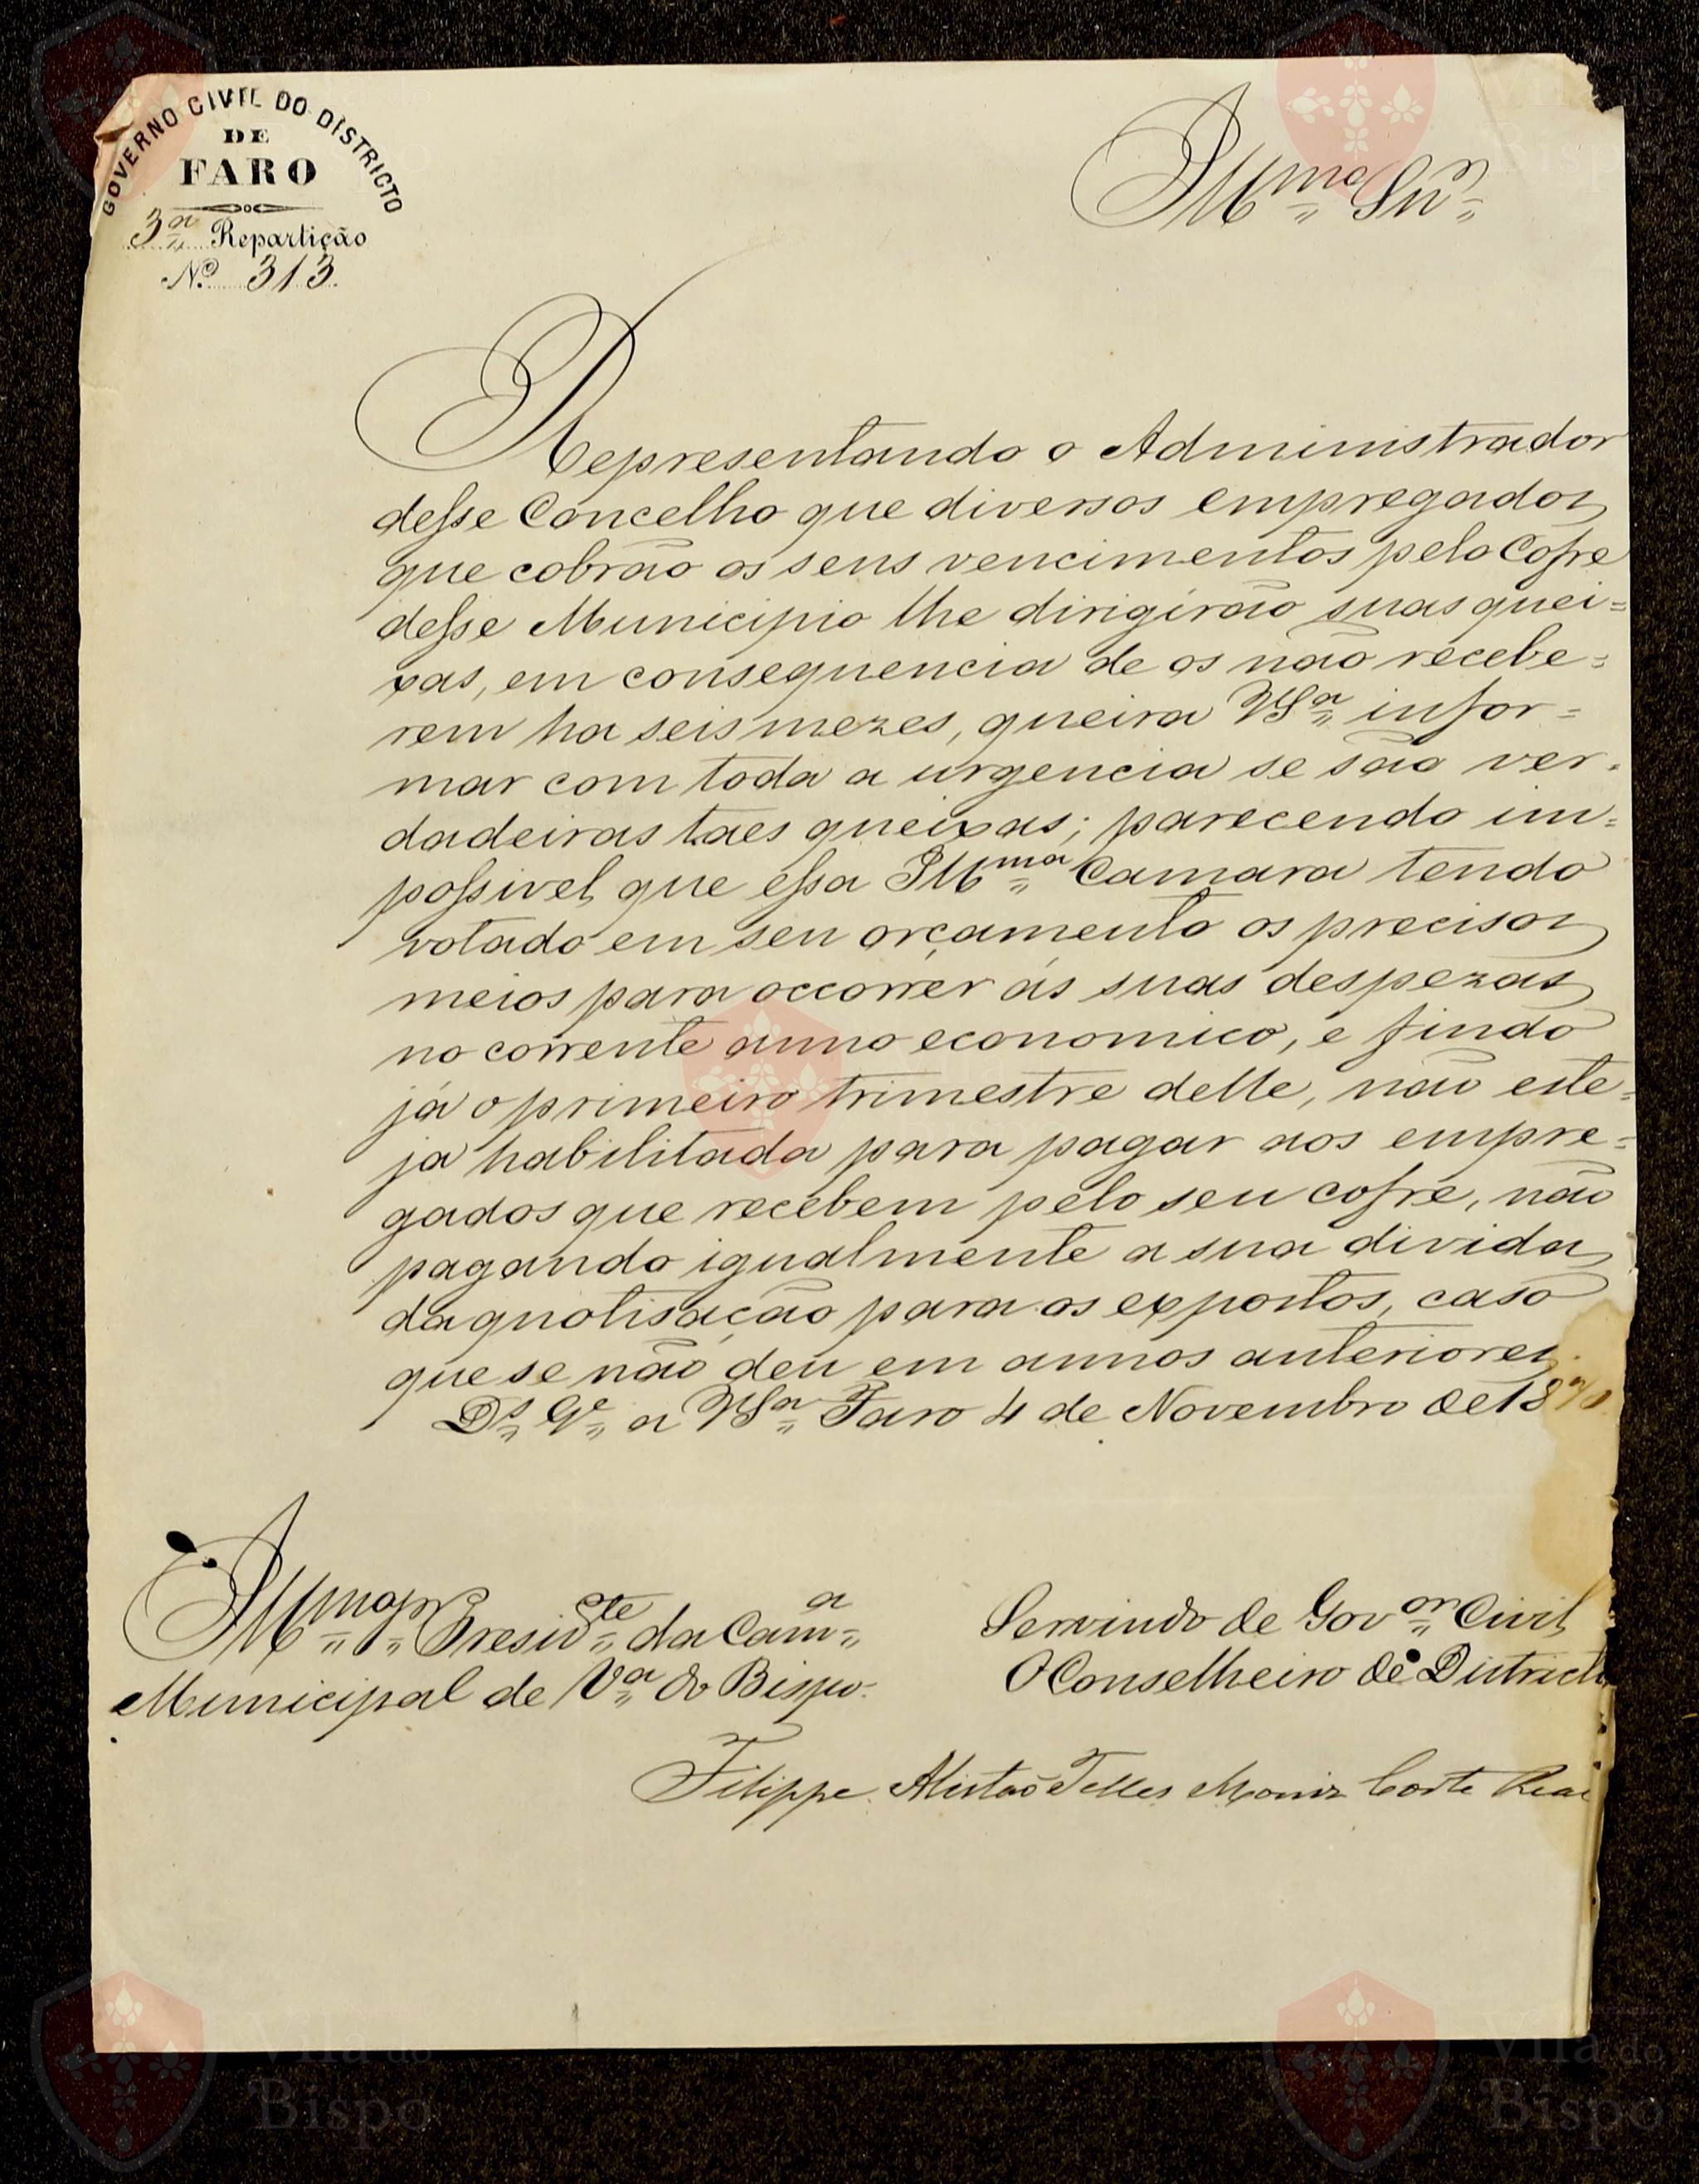 GOVERNO CIVIL DO DISTRICTO
DE
FARO
3ª Repartição
Nº 313.
Illmo Snr
Representando o Administrador
desse Concelho que diversos empregados
que cobrão os seus vencimentos pelo Cofre
desse Municipio lhe dirigirão suas quei=
xas, em consequencia de os não recebe=
rem ha seis mezes, queira VSª infor=
mar com toda a urgencia se são ver=
dadeiras taes queixas; parecendo im=
possivel que essa Illma Camara tendo
votado em seu orçamento os precisos
meios para occorrer ás suas despezas
no corrente anno economico, e findo
já o primeiro trimestre delle, não este=
ja habilitada para pagar aos empre=
gados que recebem pelo seu cofre, não
pagando igualmente a sua divida
da quotisação para os expostos, caso
que se não deu em annos anteriores.
Ds Ge a VSª Faro 4 de Novembro de 18
Illmo Snr Presidte da Camª
Municipal de Vª do Bispo.
Servindo de Govor Civil
O Conselheiro de Districto
Filippe Telles Moniz Corte Real
Vila do
Bispo
Vila do
Bispo